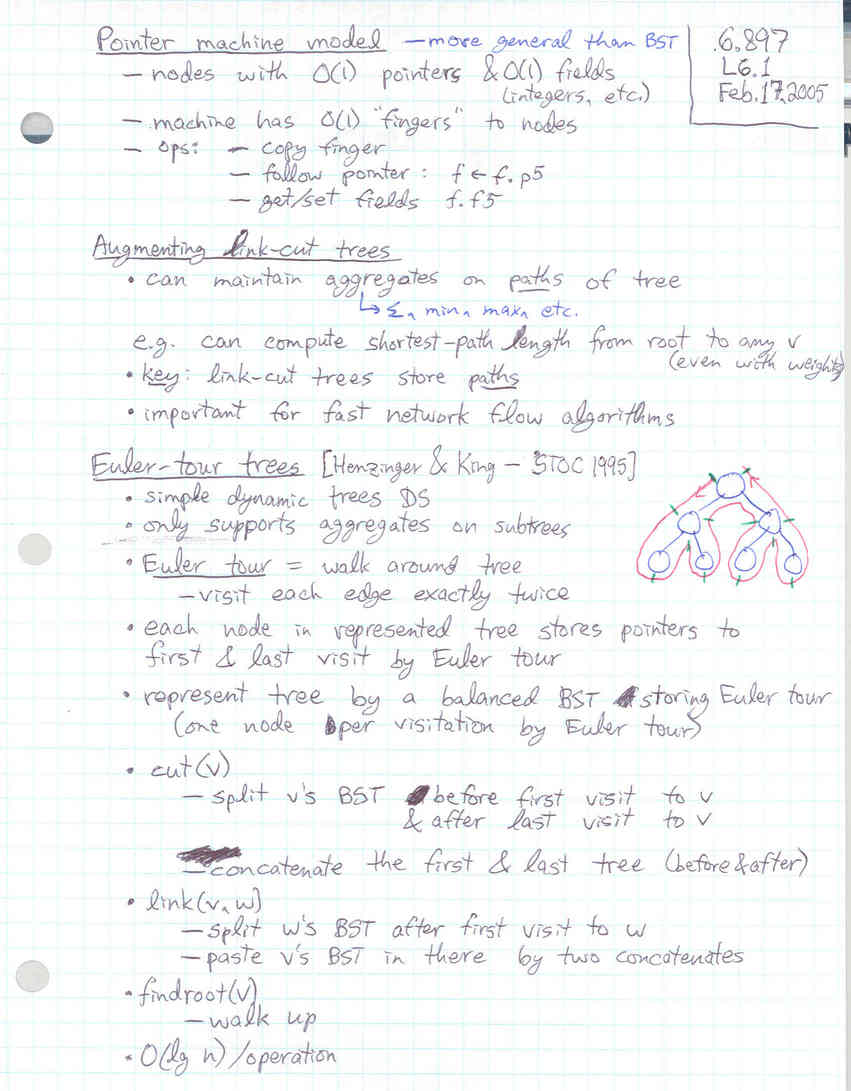 Pointer machine model — more general than BST
6.897
L6.1
Feb. 17, 2005
— nodes with O(1) pointers & O(1) fields
(integers, etc.)
— machine has O(1) "fingers" to nodes
— ops: — copy finger
— follow pointer : f ← f.p5
— get/set fields f.f5
Augmenting link-cut trees
• can maintain aggregates on paths of tree
↳ Σ, min, max, etc.
e.g. can compute shortest-path length from root to any v
(even with weights)
• key: link-cut trees store paths
• important for fast network flow algorithms
Euler-tour trees [Henzinger & King — STOC 1995]
• simple dynamic trees DS
• only supports aggregates on subtrees
• Euler tour = walk around tree
— visit each edge exactly twice
• each node in represented tree stores pointers to
first & last visit by Euler tour
• represent tree by a balanced BST storing Euler tour
(one node per visitation by Euler tour)
• cut(v)
— split v's BST before first visit to v
& after last visit to v
— concatenate the first & last tree (before & after)
• link(v, w)
— split w's BST after first visit to w
— paste v's BST in there by two concatenates
• findroot(v)
— walk up
• O(lg n) / operation